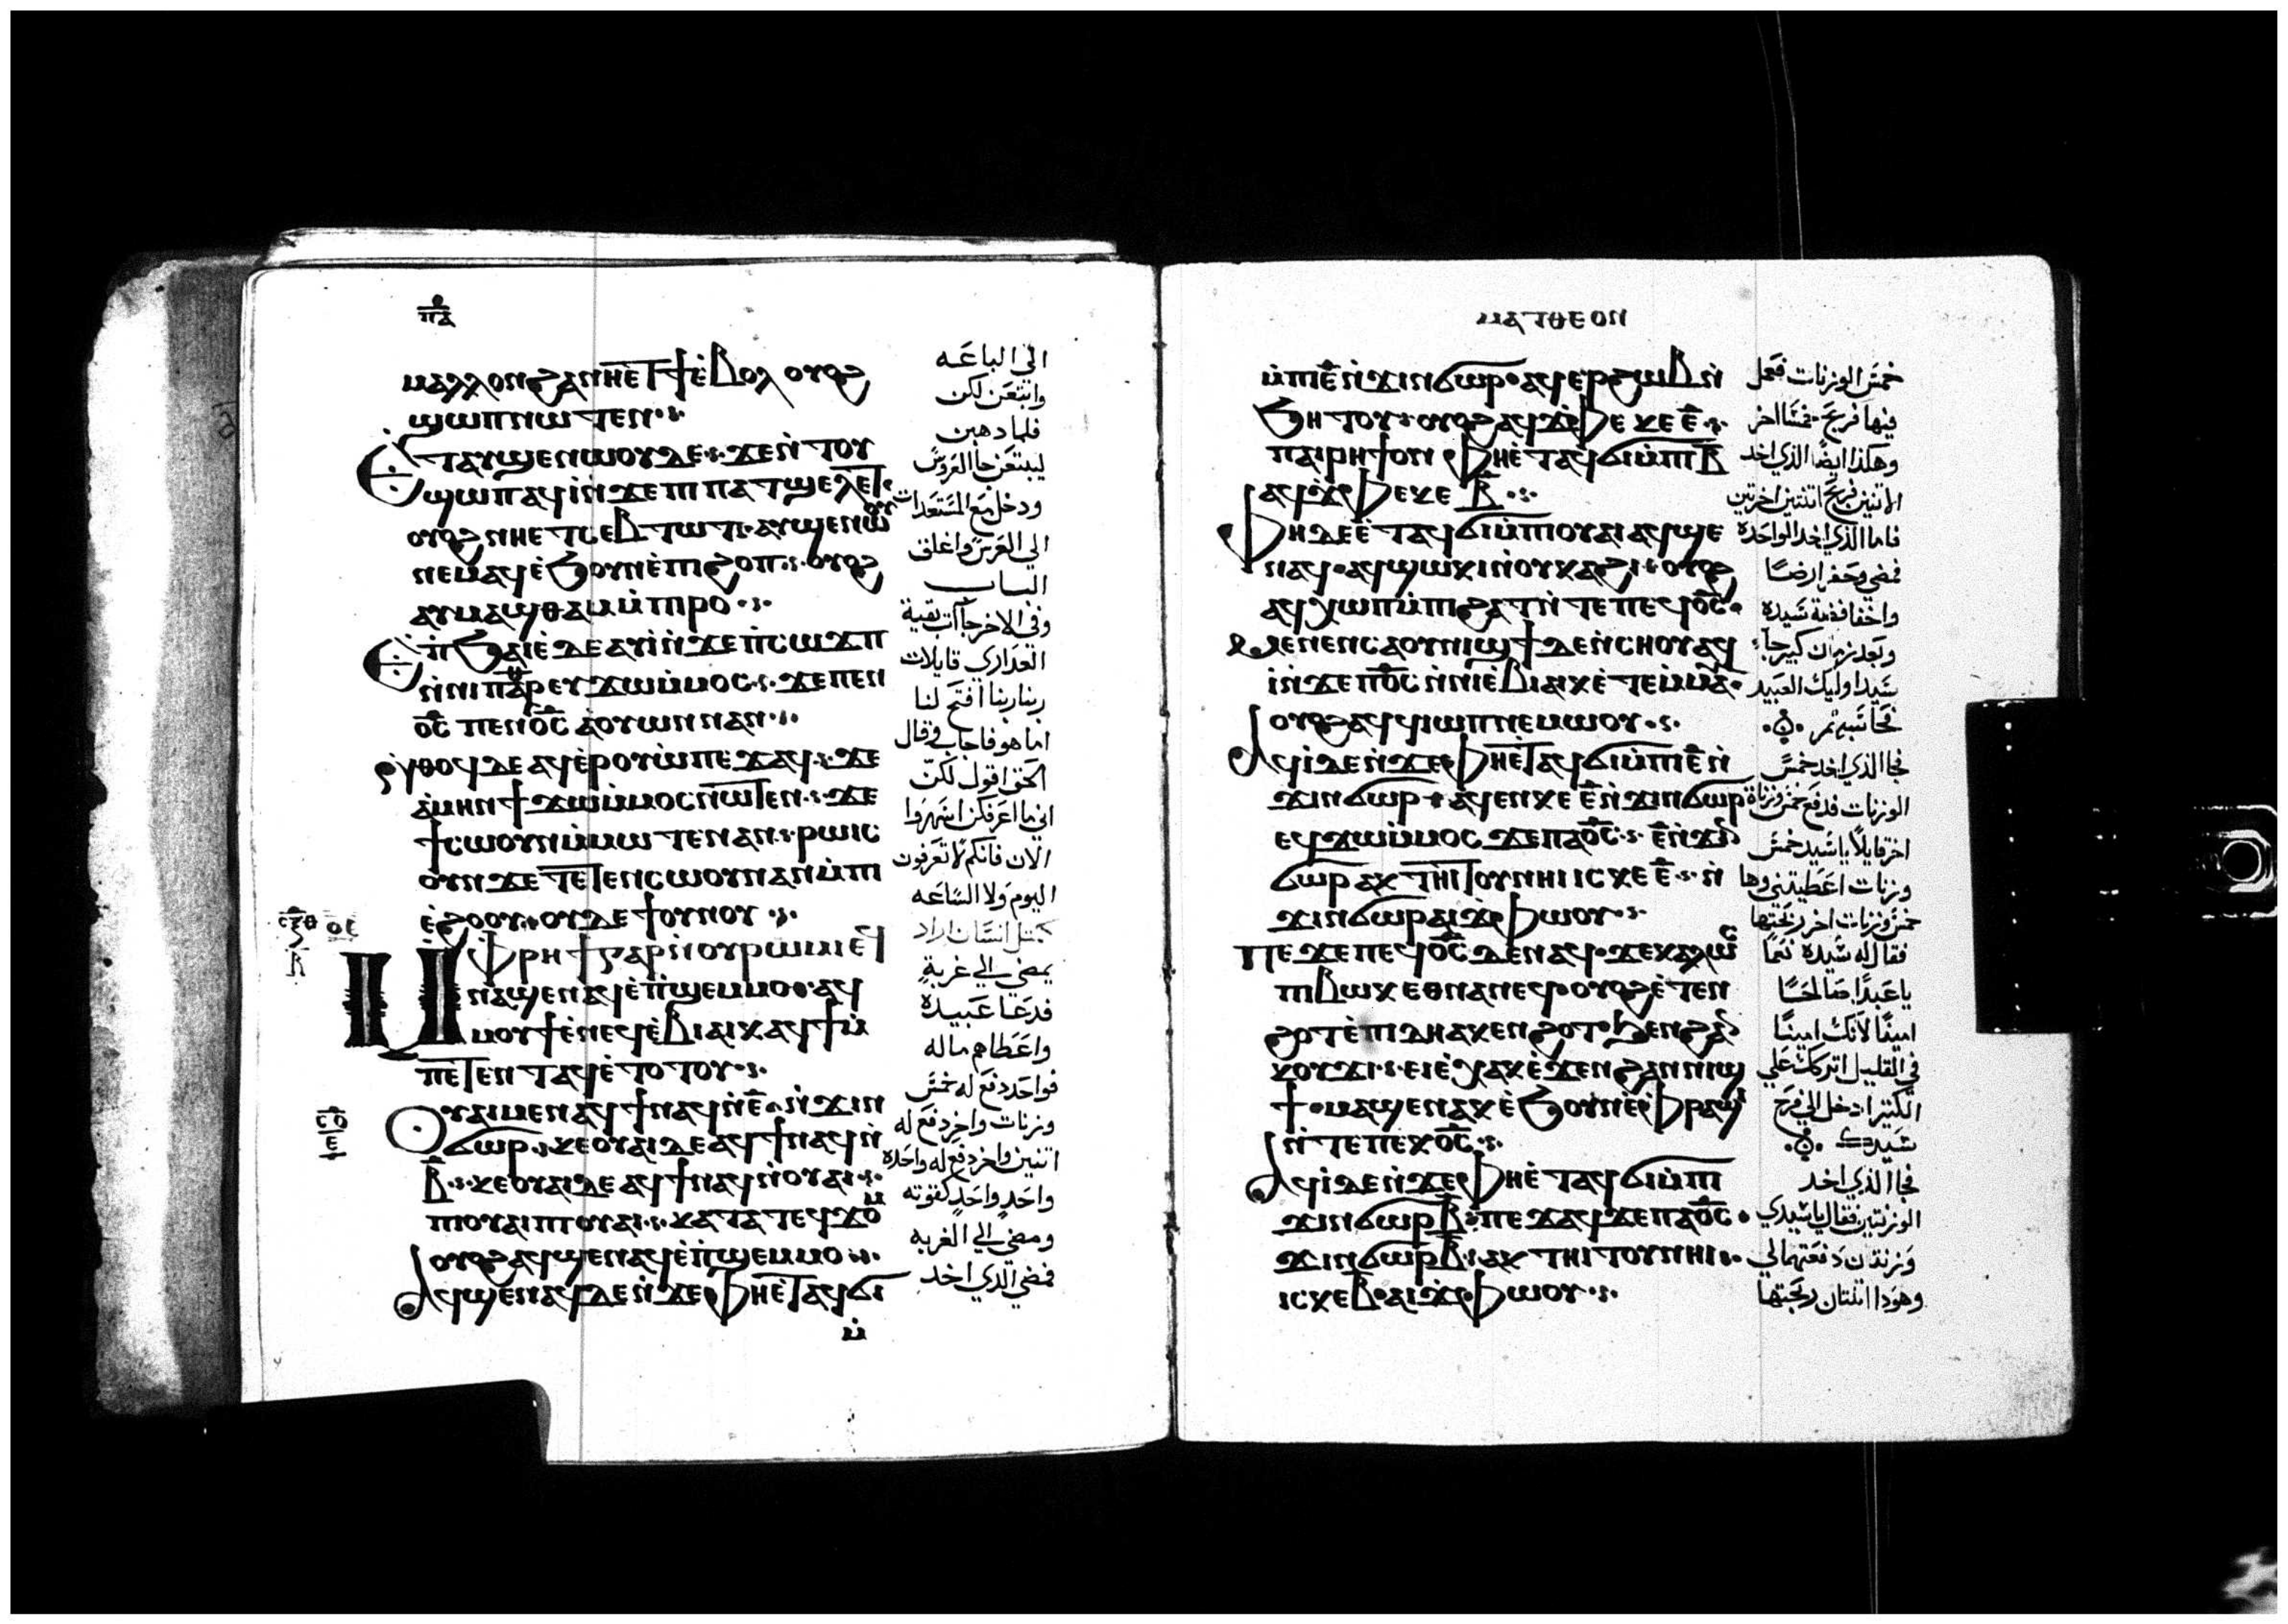 ⲡⲁ
ⲙⲁⲗⲗⲟⲛ ϩⲁ ⲛⲏⲉⲧϯ ⲉⲃⲟⲗ ⲟⲩⲟϩ
ϣⲱⲡ ⲛⲱⲧⲉⲛ
ⲉⲧⲁⲩϣⲉⲛⲱⲟⲩ ⲇⲉ ϫⲉⲛⲧⲟⲩ
ϣⲱⲡ ⲁϥⲓ ⲛϫⲉ ⲡⲓⲡⲁⲧϣⲉⲗⲉⲧ
ⲟⲩⲟϩ ⲛⲏⲉⲧⲥⲉⲃⲧⲱⲧ ⲁⲩϣⲉⲛⲱⲟⲩ
ⲛⲉⲙⲁϥ ⲉϧⲟⲩⲛ ⲉⲡⲓϩⲟⲡ ⲟⲩⲟϩ
ⲁⲩⲙⲁϣⲑⲁⲙ ⲙⲡⲓⲣⲟ
ⲉⲡϧⲁⲉ ⲇⲉ ⲁⲩⲓ ⲛϫⲉ ⲡⲥⲱϫⲡ
ⲛⲛⲓⲡⲁⲣ ⲉⲩϫⲱ ⲙⲙⲟⲥ ϫⲉ ⲡⲉⲛ
ⲟⲥ ⲡⲉⲛⲟⲥ ⲁⲟⲩⲱⲛ ⲛⲁⲛ
ⲛⲑⲟϥ ⲇⲉ ⲁϥⲉⲣⲟⲩⲱ ⲡⲉϫⲁϥ ϫⲉ
ⲁⲙⲏⲛ ϯϫⲱ ⲙⲙⲟⲥ ⲛⲱⲧⲉⲛ ϫⲉ
ϯⲥⲱⲟⲩⲛ ⲙⲙⲱⲧⲉⲛ ⲁⲛ ⲣⲱⲓⲥ
ⲟⲩⲛ ϫⲉ ⲧⲉⲧⲉⲛⲥⲱⲟⲩⲛ ⲁⲛ ⲙⲡⲓ
ⲉϩⲟⲟⲩ ⲟⲩⲇⲉ ϯⲟⲩⲛⲟⲩ
ⲙⲫⲣⲏϯ ⲅⲁⲣ ⲛⲟⲩⲣⲱⲙⲓ ⲉϥ
ⲛⲁϣⲉⲛⲁϥ ⲉⲡϣⲉⲙⲙⲟ ⲁϥ
ⲙⲟⲩϯ ⲉⲛⲉϥⲉⲃⲓⲁⲓⲕ ⲁϥϯ ⲙ
ⲡⲉⲧⲉⲛⲧⲁϥ ⲉⲧⲟⲧⲟⲩ
ⲟⲩⲁⲓ ⲙⲉⲛ ⲁϥϯ ⲛⲁϥ ⲛⲉ ⲛϫⲓⲛ
ϭⲱⲣ ⲕⲉⲟⲩⲁⲓ ⲇⲉ ⲁϥϯ ⲛⲁϥ ⲛ
ⲃ ⲕⲉⲟⲩⲁⲓ ⲇⲉ ⲁϥϯ ⲛⲁϥ ⲛⲟⲩⲁⲓ
ⲡⲓⲟⲩⲁⲓ ⲡⲓⲟⲩⲁⲓ ⲕⲁⲧⲁ ⲧⲉϥϫⲟⲙ
ⲟⲩⲟϩ ⲁϥϣⲉⲛⲁϥ ⲉⲡϣⲉⲙⲙⲟ
ⲁϥϣⲉⲛⲁϥ ⲇⲉ ⲛϫⲉ ⲫⲏⲉⲧⲁϥϭⲓ
ⲙ
الي الباعه
وابتعن لكن
فلما ذهبن
ليبتعن جا العروس
ودخل مع المستعدات
الي العرس واغلق
الباب
وفي الاخر جاات بقية
العداري قايلات
ربنا ربنا افتح لنا
اما هو فاجاب وقال
الحق اقول لكن
اني ما اعرفكن اسهروا
الان فانكم لا تعرفون
اليوم ولا الساعه
كمثل انسان اراد
يمضي الي غربة
فدعا عبيده
واعطاهم ماله
فواحد دفع له خمس
وزنات واخر دفع له
اتنين واخر دفع له واحده
واحد واحد كقوته
ومضي الي الغربه
فمضي الدي اخد
ⲙⲁⲧⲑⲉⲟⲛ
ⲙⲡⲓⲉ ⲛϫⲓⲛϭⲱⲣ ⲁϥⲉⲣϩⲱⲃ ⲛ
ϧⲏⲧⲟⲩ ⲟⲩⲟϩ ⲁϥϫⲫⲉ ⲕⲉ ⲉ
ⲡⲁⲓⲣⲏϯ ⲟⲛ ⲫⲏⲉⲧⲁϥϭⲓ ⲙⲡⲓⲃ
ⲁϥϫⲫⲉ ⲕⲉ ⲃ
ⲫⲏ ⲇⲉ ⲉⲧⲁϥϭⲓ ⲙⲡⲓⲟⲩⲁⲓ ⲁϥϣⲉ
ⲛⲁϥ ⲁϥϣⲱⲕⲓ ⲛⲟⲩⲕⲁϩⲓ ⲟⲩⲟϩ
ⲁϥⲭⲱⲡ ⲙⲡⲓϩⲁⲧ ⲛⲧⲉ ⲡⲉϥⲟⲥ
ⲙⲉⲛⲉⲛⲥⲁ ⲟⲩⲛⲓϣϯ ⲇⲉ ⲛⲥⲏⲟⲩ ⲁϥ
ⲓ ⲛϫⲉ ⲡⲟⲥ ⲛⲛⲓⲉⲃⲓⲁⲓⲕ ⲉⲧⲉⲙⲙⲁ
ⲟⲩⲟϩ ⲁϥϥⲓⲱⲡ ⲛⲉⲙⲱⲟⲩ
ⲁϥⲓ ⲇⲉ ⲛϫⲉ ⲫⲏⲉⲧⲁϥϭⲓ ⲙⲡⲓⲉ ⲛ
ϫⲓⲛϭⲱⲣ ⲁϥⲉⲛ ⲕⲉ ⲉ ⲛϫⲓⲛϭⲱⲣ
ⲉϥϫⲱ ⲙⲙⲟⲥ ϫⲉ ⲡⲁⲟⲥ ⲉ ⲛϫⲓⲛ
ϭⲱⲣ ⲁⲕⲧⲏⲓⲧⲟⲩ ⲛⲏⲓ ⲓⲥ ⲕⲉ ⲉ ⲛ
ϫⲓⲛϭⲱⲣ ⲁⲓϫⲫⲱⲟⲩ
ⲡⲉϫⲉ ⲡⲉϥⲟⲥ ⲇⲉ ⲛⲁϥ ϫⲉ ⲕⲁⲗⲱⲥ
ⲡⲓⲃⲱⲕ ⲉⲑⲛⲁⲛⲉϥ ⲟⲩⲟϩ ⲉⲧⲉⲛ
ϩⲟⲧ ⲉⲡⲓⲇⲏ ⲁⲕⲉⲛϩⲟⲧ ϧⲉⲛ ϩⲁⲛ
ⲕⲟⲩϫⲓ ⲉⲓⲉⲭⲁⲕ ⲉϫⲉⲛ ϩⲁⲛⲛⲓϣ
ϯ ⲙⲁϣⲉⲛⲁⲕ ⲉϧⲟⲩⲛ ⲉⲫⲣⲁϣⲓ
ⲛⲧⲉ ⲡⲉⲕⲟⲥ
ⲁϥⲓ ⲇⲉ ⲛϫⲉ ⲫⲏⲉⲧⲁϥϭⲓ ⲙⲡⲓ
ϫⲓⲛϭⲱⲣ ⲃ ⲡⲉϫⲁϥ ϫⲉ ⲡⲁⲟⲥ
ϫⲓⲛϭⲱⲣ ⲃ ⲁⲕⲧⲏⲓⲧⲟⲩ ⲛⲏⲓ
ⲓⲥ ⲕⲉ ⲃ ⲁⲓϫⲫⲱⲟⲩ
خمس الوزنات فعمل
فيها فربح خمسا اخر
وهكذا ايضا الذي اخد
الاتنين فربح اتنتين اخرتين
فاما الذي اخد الواحده
فمضي وحفر ارضا
واخفا فضة سيده
وبعد زمان كبير جا
سيد اوليك العبيد
فحاسبهم
فجا الذي اخد خمس
الوزنات فدفع خمس وزنات
اخر قايلا يا سيد خمس
وزنات اعطيتني وها
خمس وزنات اخر ربحتها
فقال له سيده نعما
يا عبدا صالحا
امينا لانك امينا
في القليل اتركك علي
الكثير ادخل الي فرح
سيدك
فجا الذي اخد
الوزنتين فقال يا سيدي
وزنتان دفعتهما لي
وهودا اتنتان ربحتها